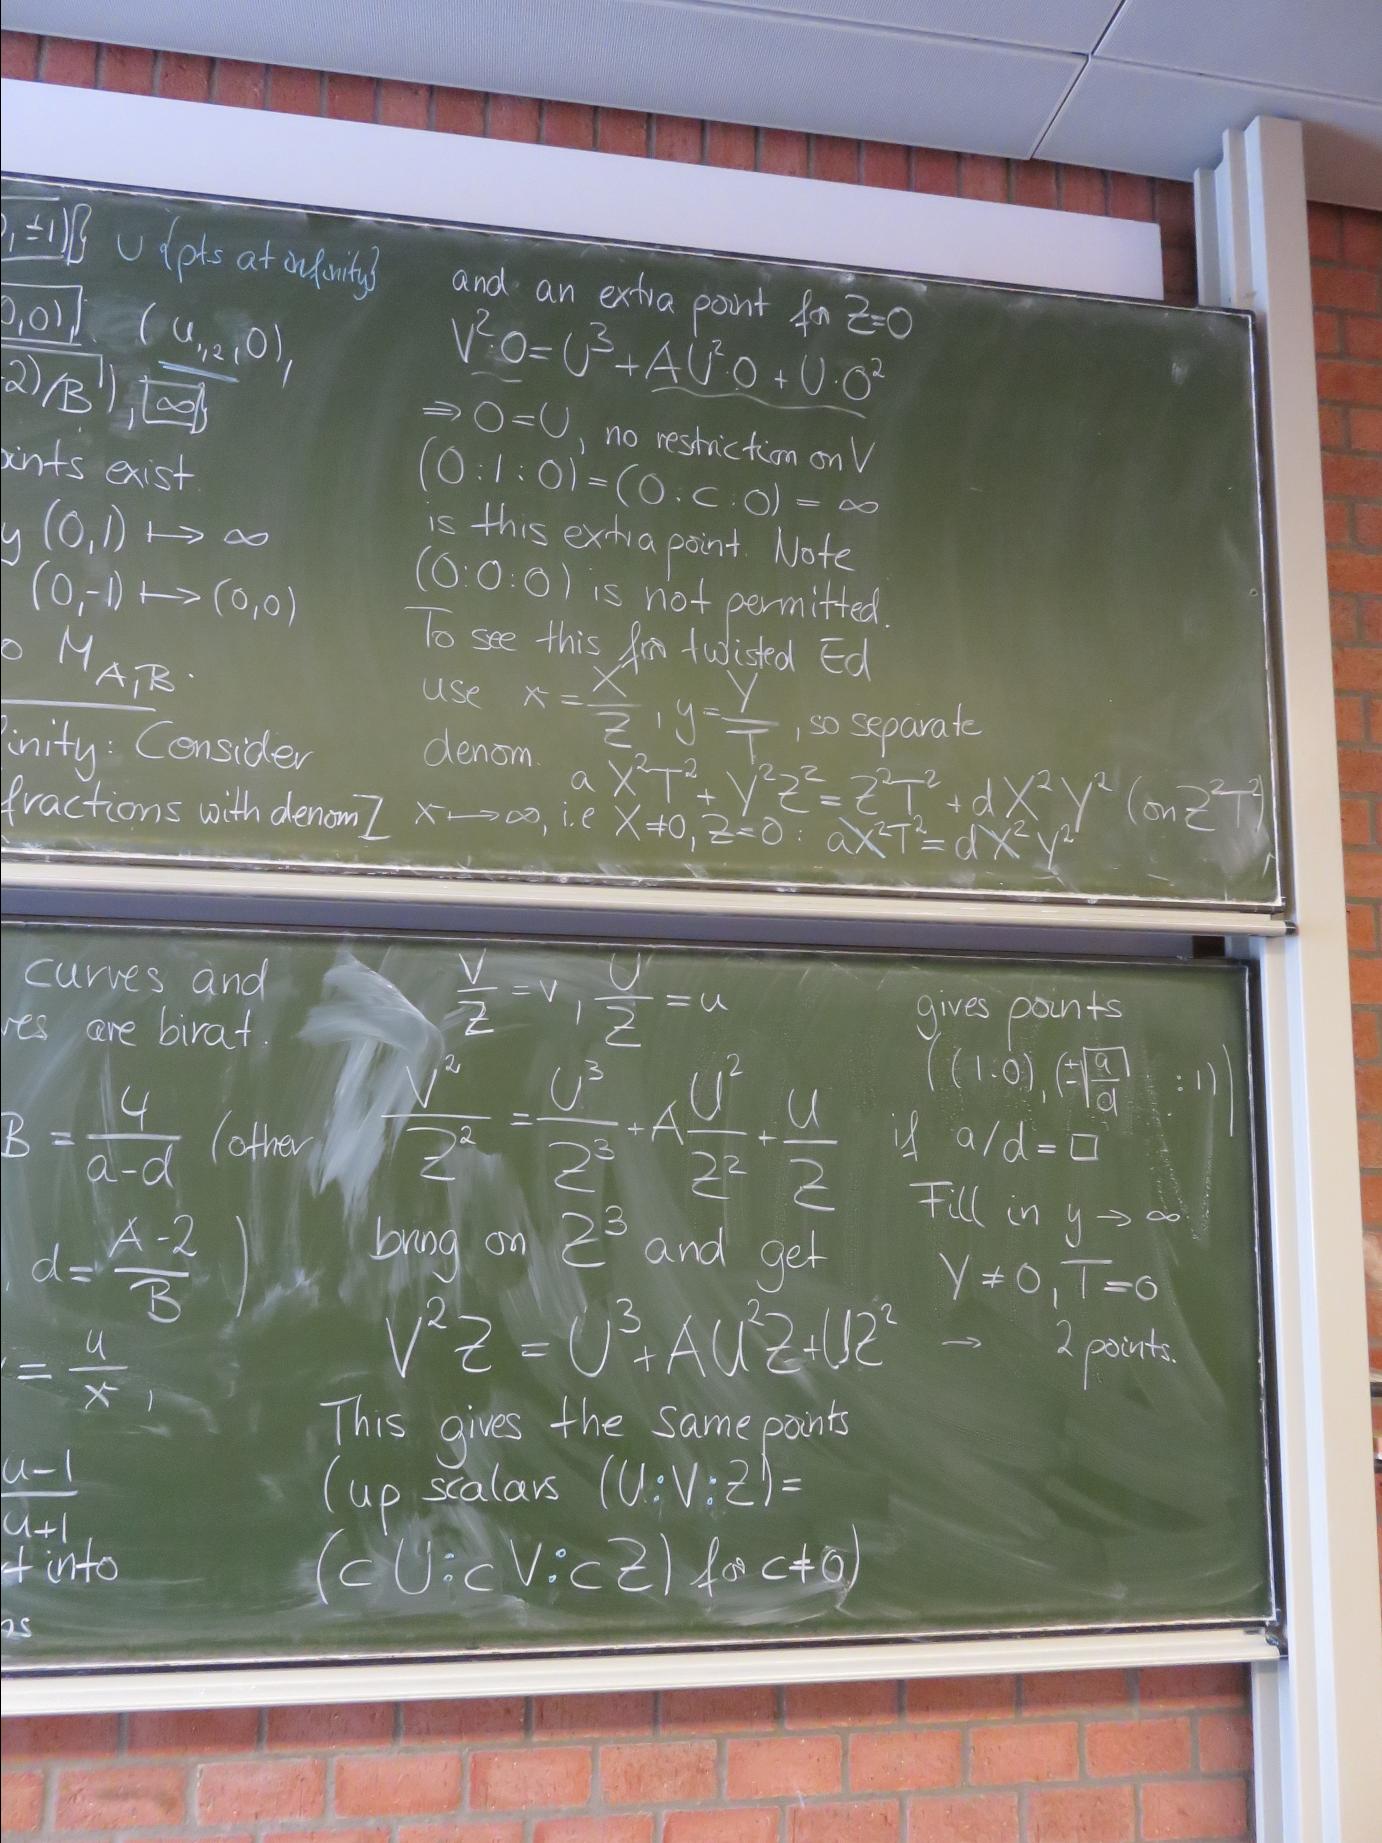 , ±1)} ∪ {pts at infinity}
0,0), (u₁,₂, 0),
-2)/B), ∞}
oints exist.
y (0,1) ↦ ∞
(0,-1) ↦ (0,0)
o M_{A,B}.
inity: Consider
fractions with denom Z
and an extra point for Z=0
V²·0 = U³ + AU²·0 + U·0²
⇒ 0 = U, no restriction on V
(0:1:0) = (0:c:0) = ∞
is this extra point. Note
(0:0:0) is not permitted.
To see this for twisted Ed
use x = X/Z, y = Y/T, so separate
denom.
a X²T² + Y²Z² = Z²T² + dX²Y² (on Z²T²)
x ↦ ∞, i.e X≠0, Z=0: aX²T² = dX²Y²
curves and
res are birat.
B = 4/(a-d) (other
, d = (A-2)/B )
= u/x,
u-1
u+1
t into
ns
V/Z = v, U/Z = u
V²/Z² = U³/Z³ + A U²/Z² + U/Z
bring on Z³ and get
V²Z = U³ + AU²Z + UZ²
This gives the same points
(up scalars (U:V:Z) =
(cU:cV:cZ) for c≠0)
gives points
((1:0), (±√(a/d) : 1))
if a/d = □
Fill in y → ∞
Y ≠ 0, T = 0
→ 2 points.